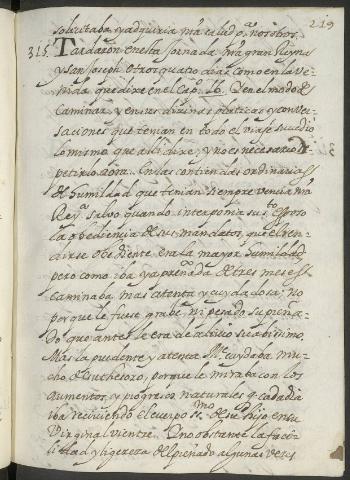 219
solicitaba y adquiria pa. ella la dha. nosotros.
315. Tardaron en esta Jornada nra gran Reyna
y san Joseph otros quatro dias como en la Ve-
nida que dixe en el Cap. 16. Y en el modo de
caminar, y en sus divinas platicas y conver-
saciones que tenian en todo el viaje sucedio
lo mismo que alli dixe, y no es necesario re-
petirlo aora. En las contiendas ordinarias
de humildad que tenian siempre vencia nra
Reyna salvo quando interponia su sto. esposo
la obediencia de sus mandatos, que el ren-
dirse obediente era la mayor humildad,
pero como iba ya preñada de tres meses
caminaba mas atenta y cuydadosa; no
porque le fuese grabe, ni pesado su preña-
do que antes le era de alivio suabisimo.
Mas la prudente y atenta Me. cuydaba mu-
cho de su thesoro, porque le miraba con los
aumentos, y progresos naturales q cada dia
iba reciviendo el cuerpo smo. de su hijo en su
Virginal vientre. Y no obstante la faci-
litad y ligereza del preñado algunas veces